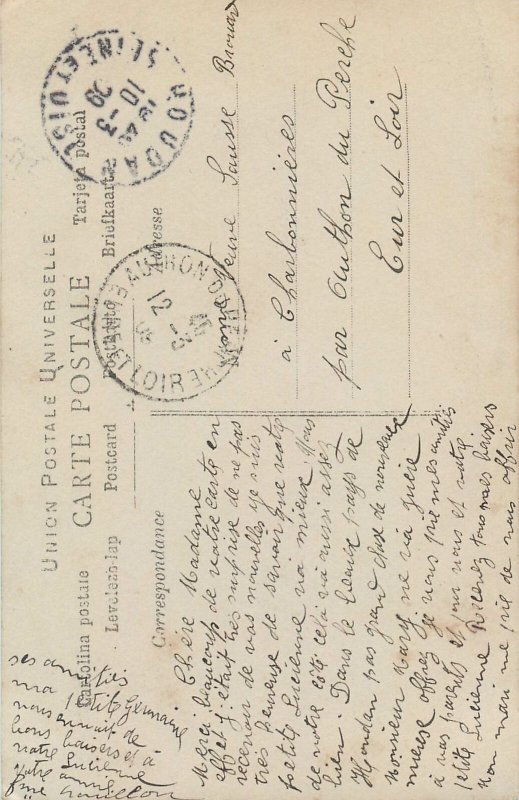 UNION POSTALE UNIVERSELLE
CARTE POSTALE
Cartolina postale Postcard Postkarte Briefkaart Tarjeta postal
Levelezo-lap
Correspondance
Adresse
HOUDAN
SEINE ET OISE
10 -3 09
AUTHON DU PERCHE
12
Mme Veuve Sausse Brouard
à Charbonnières
par Authon du Perche
Eur et Loir
Chère Madame
Merci beaucoup de votre carte en
effet j'était très surprise de ne pas
recevoir de vos nouvelles je suis
très heureuse de savoir que votre
petite Lucienne va mieux. Nous
de notre côté cela va aussi assez
bien. Dans le beaux pays de
Houdan pas grand chose de nouveaux
Monsieur Harcy ne va guère
mieuse offrez je vous prie mes amitiés
à vos parents et pour vous et votre
petite Lucienne Recevez tous mes baisers
Mon mari me prie de vous offrir
ses amitiés
ma petite Germaine
vous envoit de
bons baisers et à
votre Lucienne
Votre amie